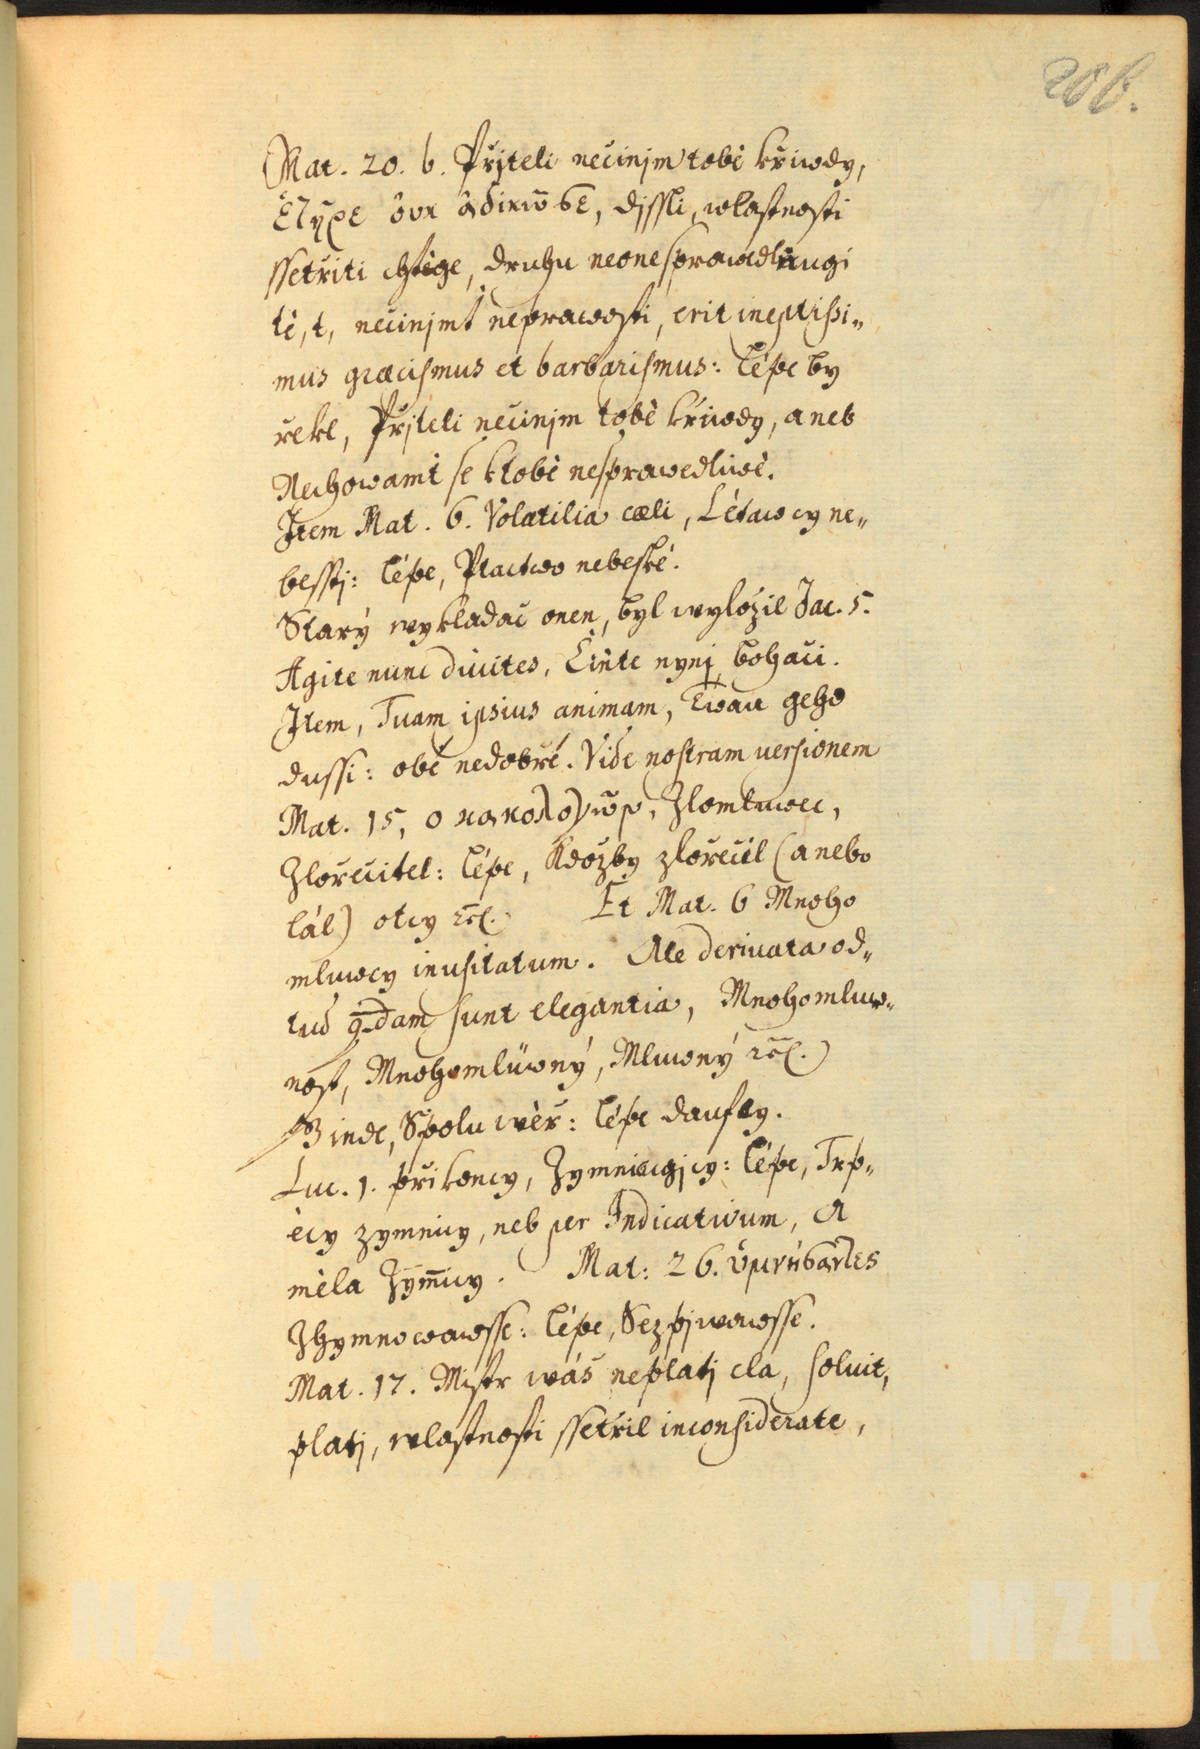 206.
Mat. 20. b. Přjteli nečinjm tobě křiwdy,
ἑταῖρε οὐκ ἀδικῶ σε, djſſli, wlaſtnoſti
ſſetřiti chtěge, druhu neoneſprawedlňugi
tě, t, nečinjmť neprawoſti, erit ineptiſsi„
mus græciſmus et barbariſmus: lépe by
řekl, Přjteli nečinjm tobě křiwdy, aneb
Nechowámť ſe ktobě neſprawedliwě.
Item Mat. 6. Volatilia cæli, Létawcy ne„
beſſtj: lépe, Ptactwo nebeſké.
Starý wykladač onen, byl wyložil Jac. 5.
Agite nunc diuites, Čiňte nynj bohači.
Item, Tuam ipsius animam, Twau geho
duſſi: obé nedobré. Vide noſtram uerſionem
Mat. 15, ο κακολογῶν, Zlomluwec,
Zlořečitel: lépe, Kdožby zlořečil (anebo
lál) otcy ꝛčſ. Et Mat. 6 Mnoho
mluwcy inuſitatum. Ale deriuata od„
tud q̄dam ſunt elegantia, Mnohomluw„
noſt, Mnohomluwný, Mluwný ꝛčſ.)
B inde, Spolu wěř: lépe daufey.
Luc. 1. při koncy, Zymničgjcy: lépe, Trp„
ěcy zymnicy, neb per Indicatiuum, A
měla Zym̄icy. Mat: 26. ὑμνήσαντες
Zhymnowawſſe: lépe, Sezpjwawſſe.
Mat. 17. Miſtr wáš neplatj cla, ſoluit,
platj, wlaſtnoſti ſſetřil inconſiderate,
MZK
MZK